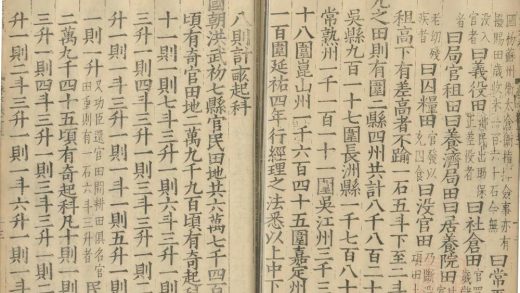 曰常
沒入官者曰義役田曰社倉田
曰局官租田曰養濟局田曰居養院田
老幼殘疾者曰囚糧田曰沒官田
租高下有差高者不踰一石五斗下至二
九之田則有圍二縣四州共計八千八百二十
吳縣九百一十七圍長洲縣一千七百八十
常熟州一千一百一十一圍吳江州三千三
十八圍崑山州一千六百四十五圍嘉定州
一圍延祐四年行經理之法悉以上中下
八則計畝起科
國朝洪武初七縣官民田地共六萬七千四百
頃有奇官田地二萬九千九百頃有奇起科
十一則七斗三升一則六斗三升一則
三升一則四斗三升一則三斗三升一則
升一則一斗三升一則一斗一則五升一則
升又功臣還官田開耕田俱名官田重則有一石六斗三升者民
二萬九千四十五頃有奇起科凡十則
升一則二斗三升一則一斗六升一則